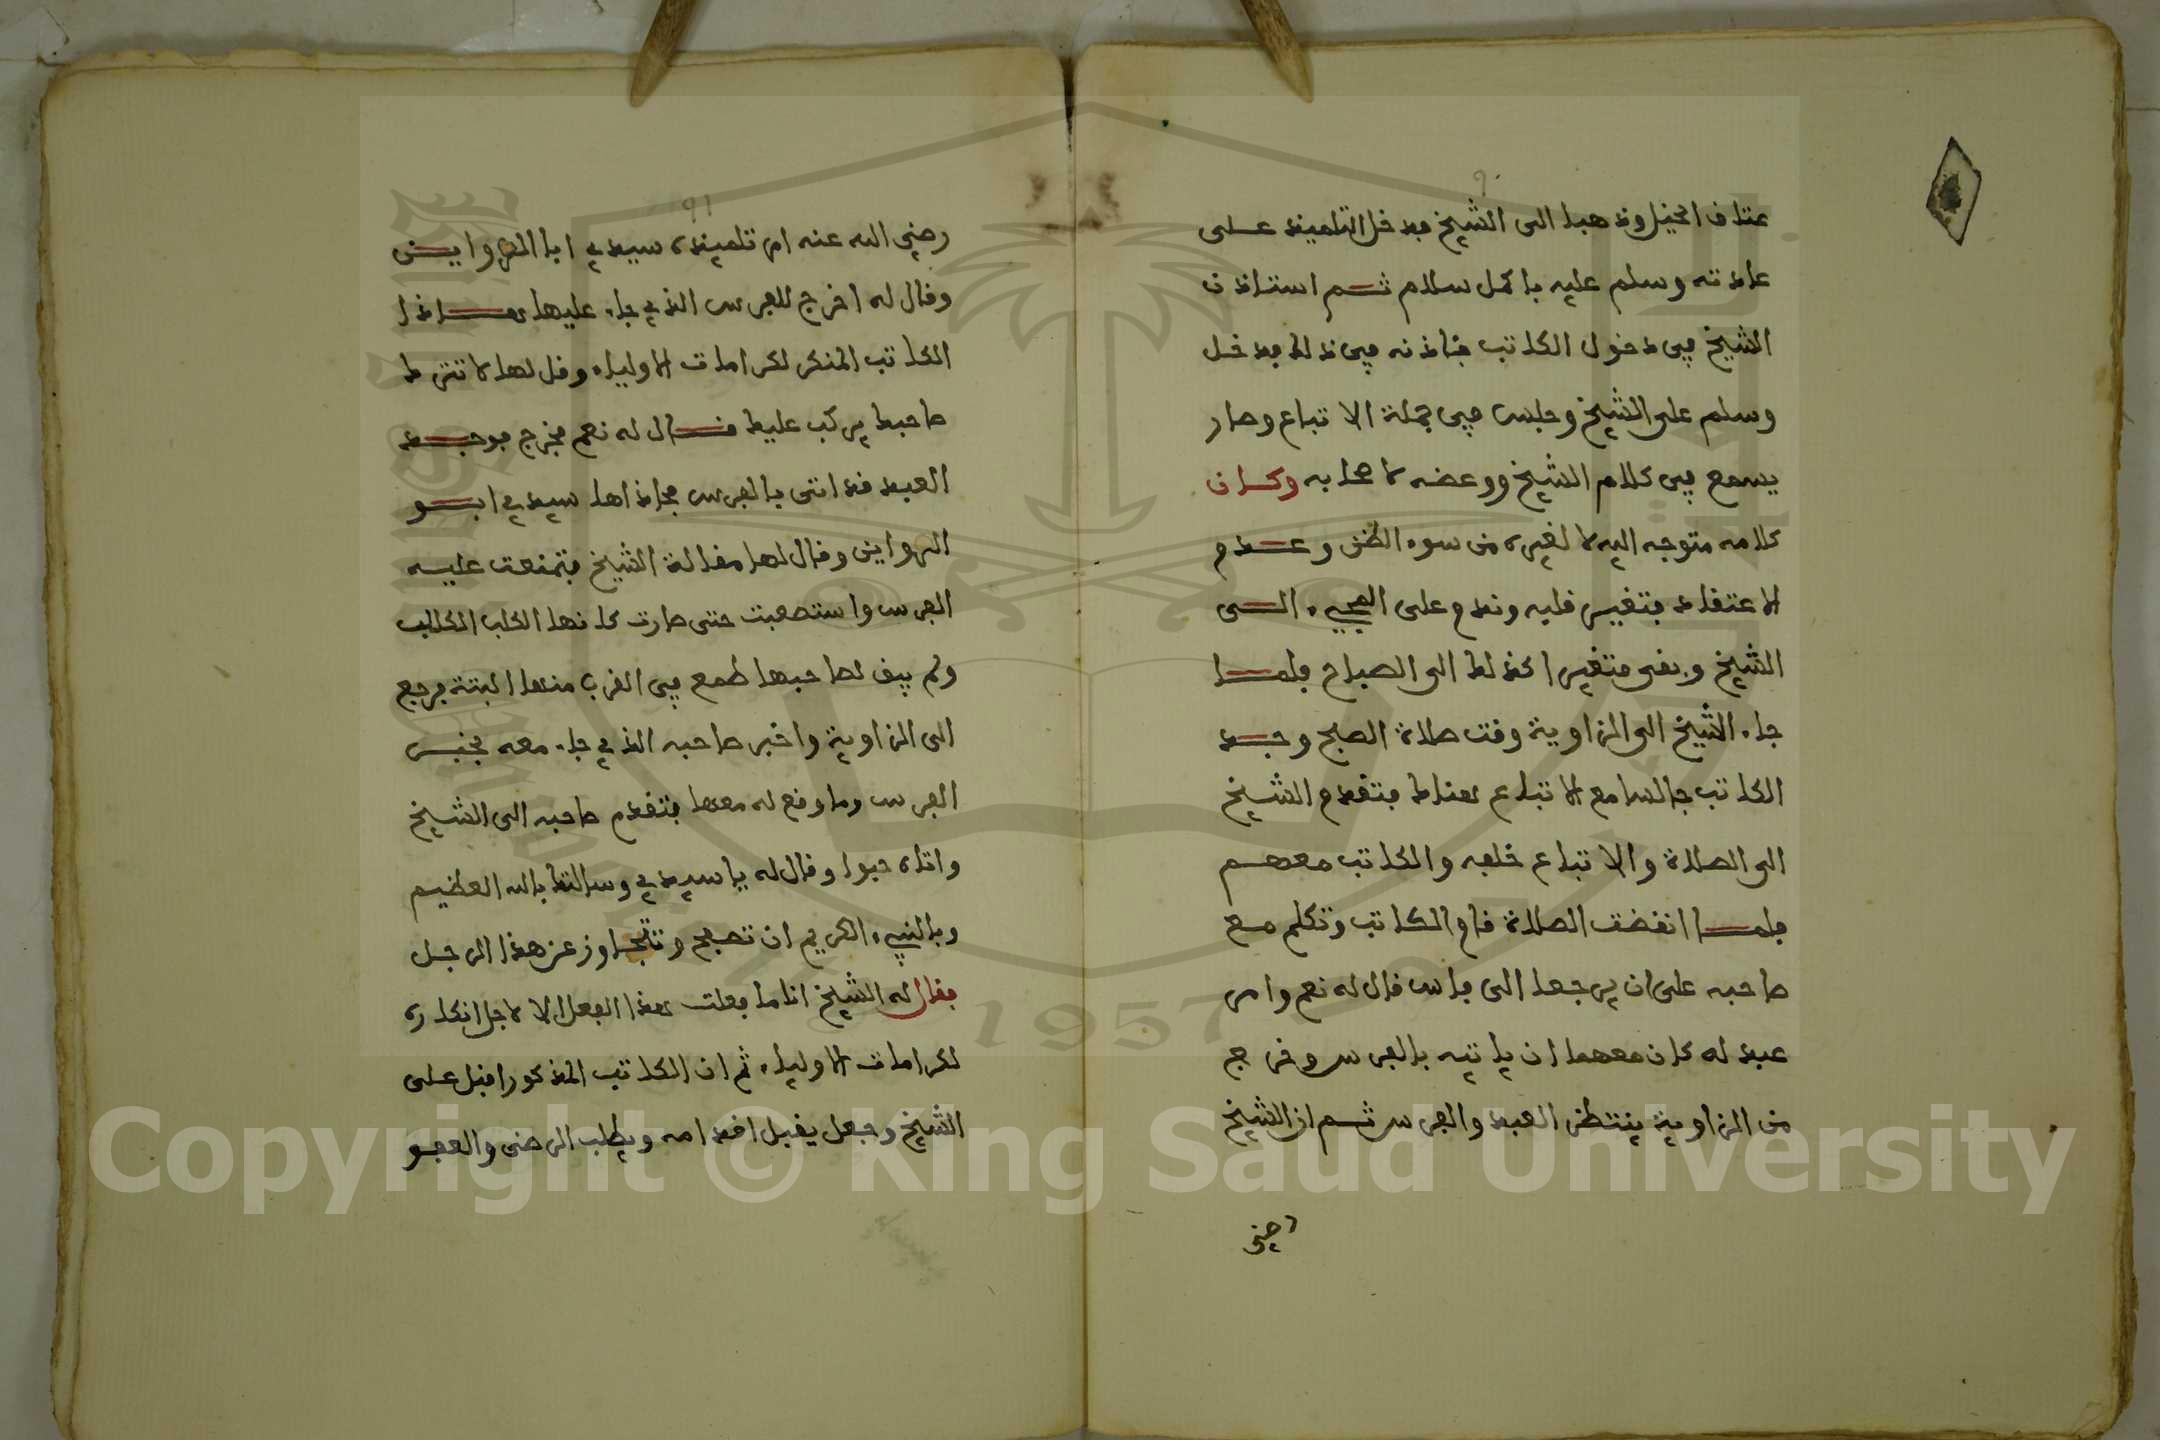 ٩٠
عتاق الخيل وذهبا الى الشيخ فدخل التلميذ على
عادته وسلم عليه باكمل سلام ثم استاذن
الشيخ في دخول الكاتب فاذنه في ذلك فدخل
وسلم على الشيخ وجلس في جملة الاتباع وصار
يسمع في كلام الشيخ ووعضه لاصحابه وكان
كلامه متوجه اليه لا لغيره من سوء الظن وعدم
الاعتقاد فتغير قلبه وندم على المجيء الى
الشيخ وبقى متغيرا كذلك الى الصباح فلما
جاء الشيخ الى الزاوية وقت صلاة الصبح وجد
الكاتب جالسا مع الاتباع هناك فتقدم الشيخ
الى الصلاة والاتباع خلفه والكاتب معهم
فلما انقضت الصلاة قام الكاتب وتكلم مع
صاحبه على ان يرجعا الى فاس قال له نعم وامر
عبد له كان معهما ان ياتيه بالفرس وخرج
من الزاوية ينتظر العبد والفرس ثم ان الشيخ
رضي
٩١
رضي الله عنه امر تلميذه سيدي ابا الرواين
وقال له اخرج للفرس الذي جاء عليها هاذا
الكاتب المنكر لكرامات الاولياء وقل لها لا تترك
صاحبك يركب عليك فقال له نعم فخرج فوجد
العبد قد اتى بالفرس فحاذاها سيدي ابو
الرواين وقال لها مقالة الشيخ فتمنعت عليه
الفرس واستصعبت حتى صارت كانها الكلب الكالب
ولم يبق لصاحبها طمع في القرب منها البتة فرجع
الى الزاوية واخبر صاحبه الذي جاء معه بخبر
الفرس وما وقع له معها فتقدم صاحبه الى الشيخ
واتاه حبوا وقال له يا سيدي وسالتك بالله العظيم
وبالنبيء الكريم ان تصفح وتتجاوز عن هذا الرجل
فقال له الشيخ انا ما فعلت هذا الفعل الا لاجل انكاره
لكرامات الاولياء ثم ان الكاتب المذكور اقبل على
الشيخ وجعل يقبل اقدامه ويطلب الرضى والعفو
1957
Copyright © King Saud University